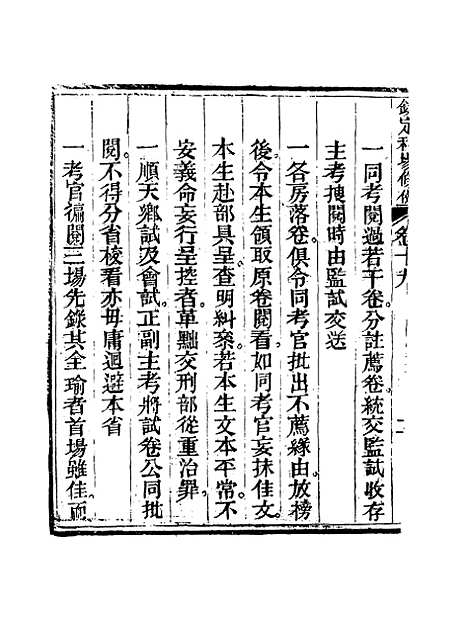 欽定科場條例 卷十九
一同考閱過若干卷分註薦卷統交監試收存
主考搜閱時由監試交送
一各房落卷俱令同考官批出不薦緣由放榜
後令本生領取原卷閱看如同考官妄抹佳文。
本生赴部具呈查明糾叅若本生文本平常不
安義命妄行呈控者革黜交刑部從重治罪。
一順天鄉試及會試正副主考將試卷公同批
閱。不得分省校看亦毋庸迴避本省
一考官徧閱三場先錄其全瑜者首場雖佳而